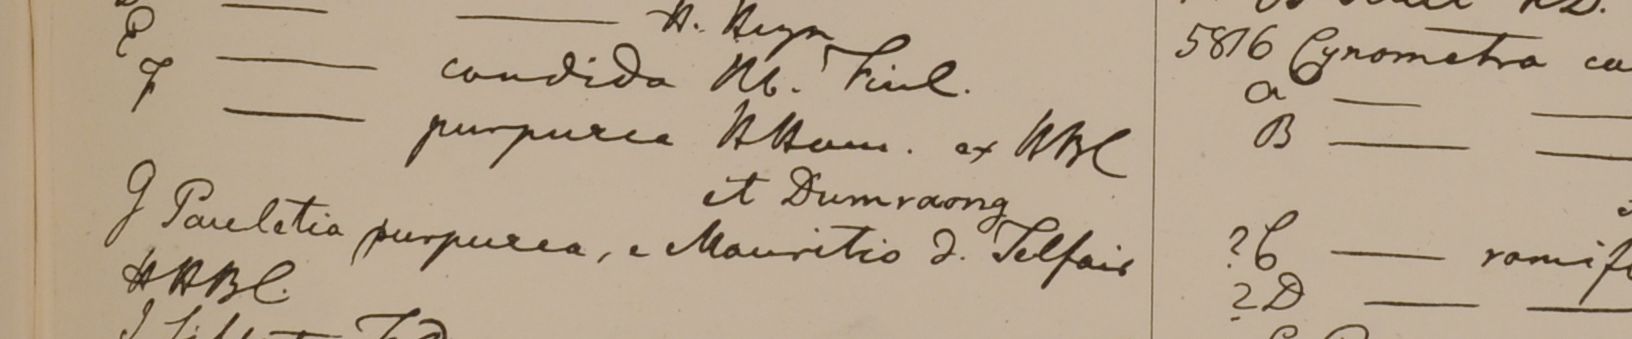 H. Heyn
E
F —— candida Rb. Finl.
—— purpurea HHam. ex HBC
et Dumraong
G Pauletia purpurea, e Mauritio d. Telfair
H HBC.
5816 Cynometra ca
a —— ——
B —— ——
?C —— ramifl
?D —— ——